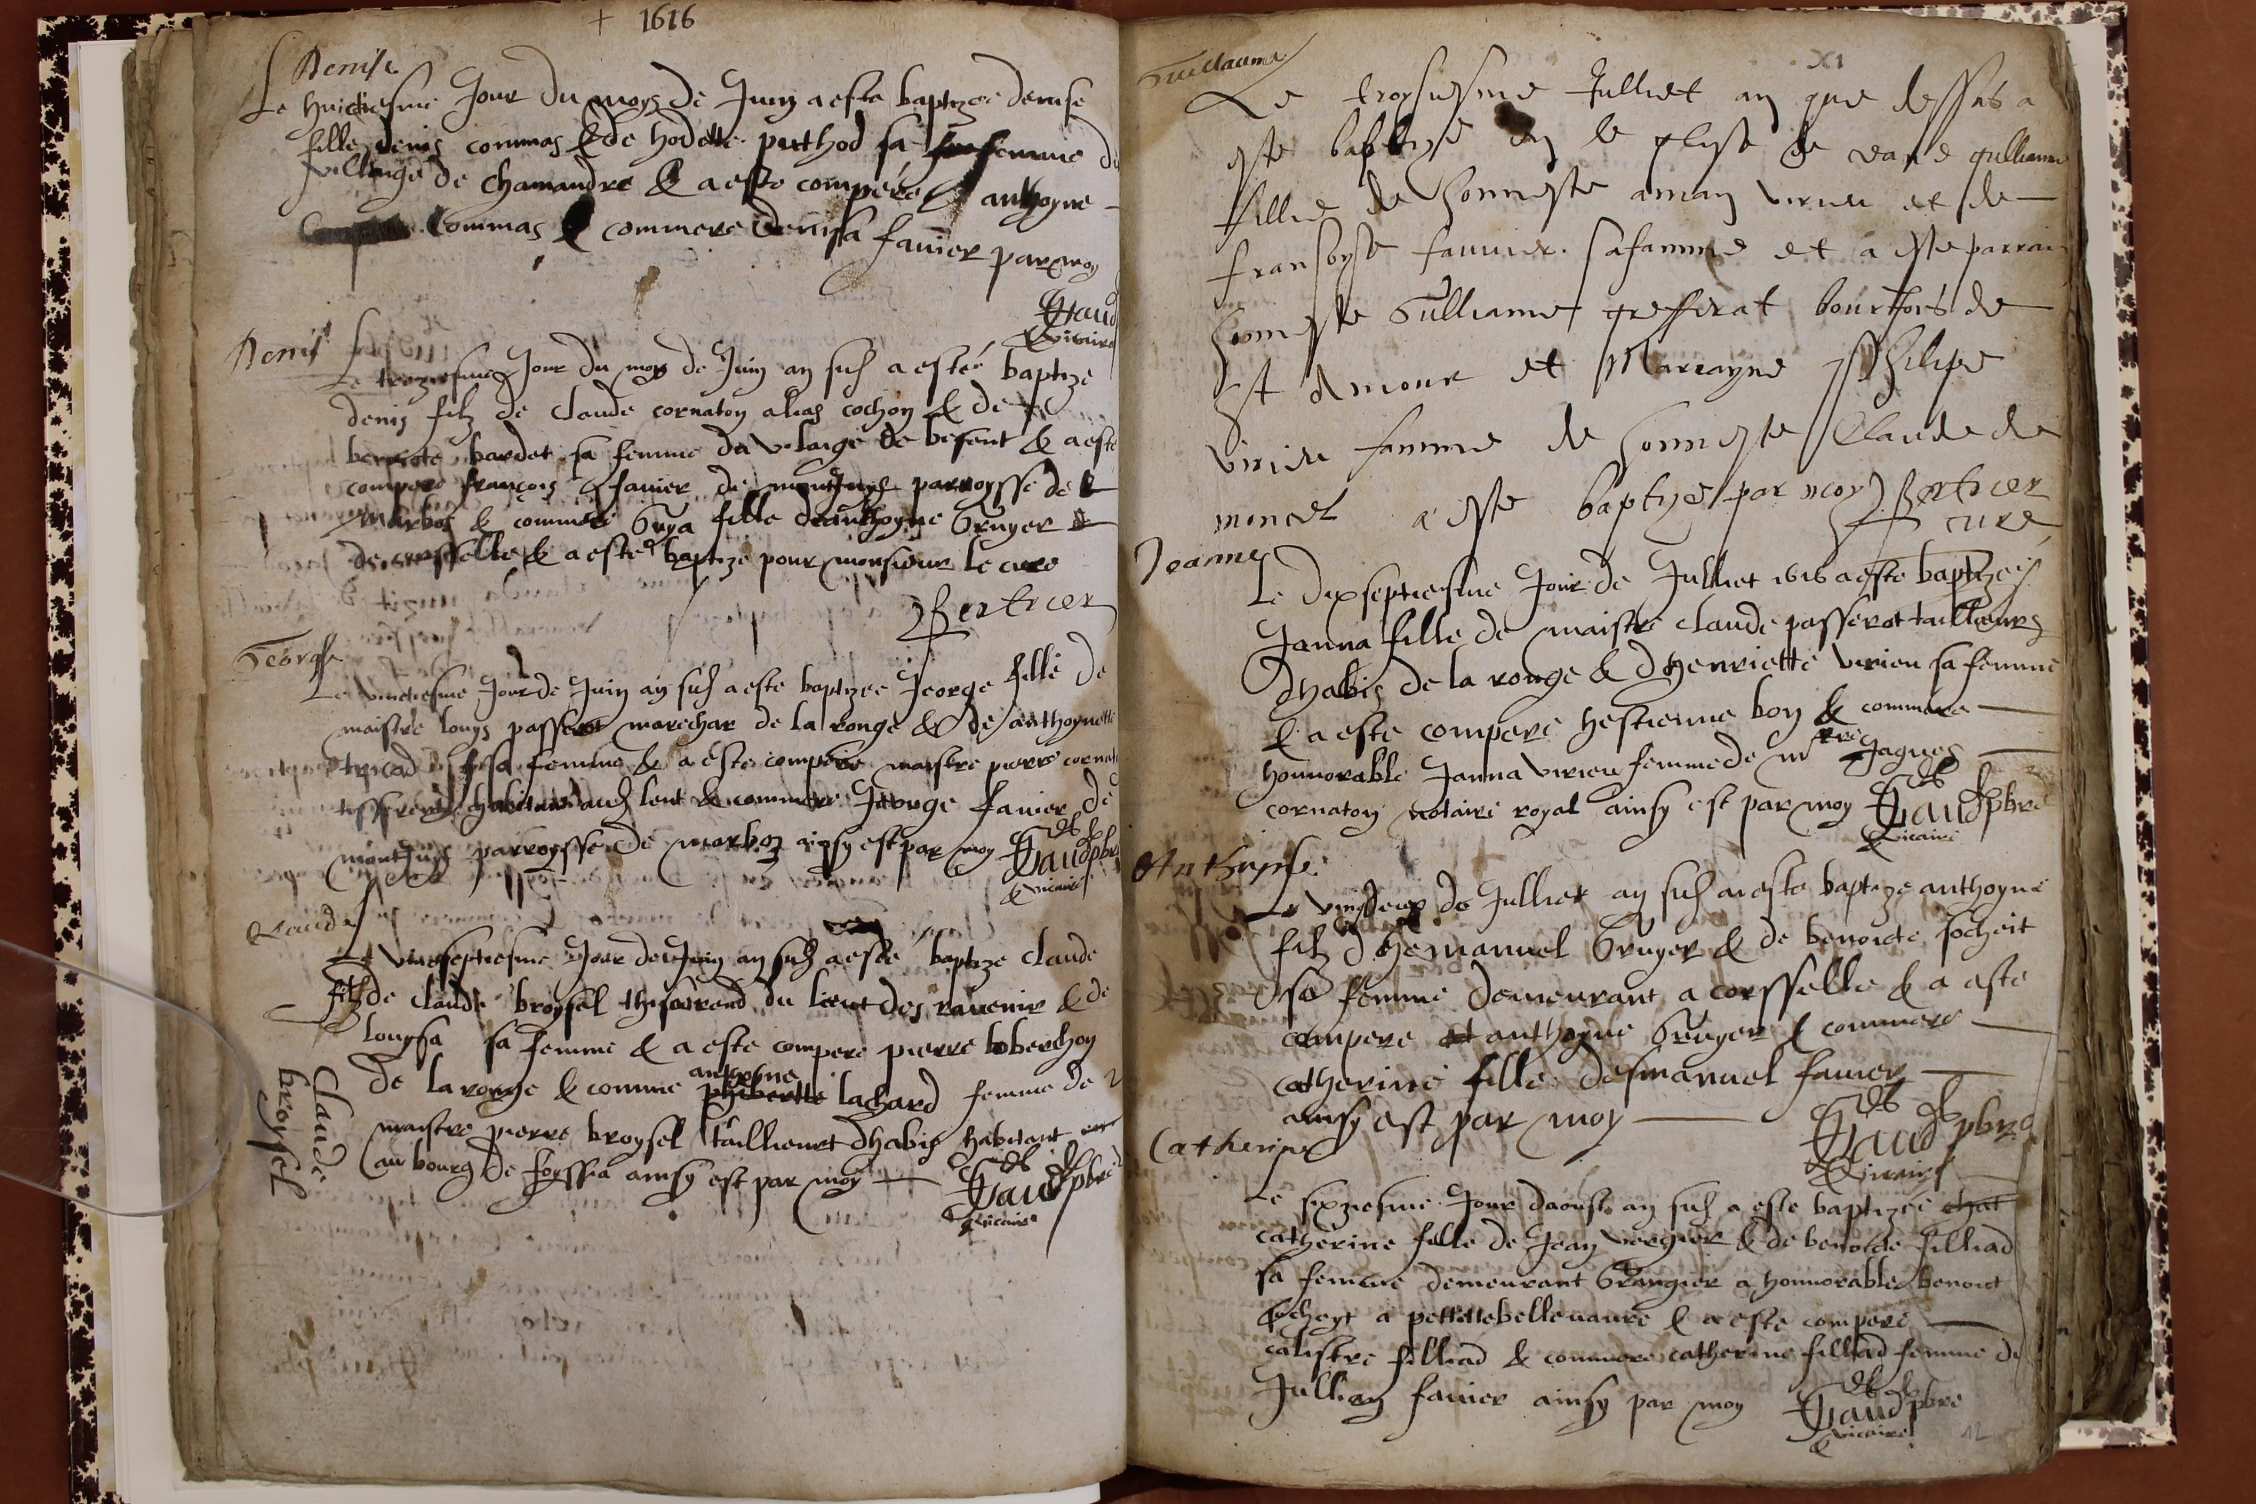 + 1616
Denise
Le huictiesme Jour du moys de Juin a este baptizee denise
fille denis commas & de hodette puthod sa femme du
village de chamandre & a este compere anthoyne
commas & commere denisa favier par moy
Gaud
vicaire
Denis
Le treziesme Jour du moys de Juin an susd a esté baptize
denis filz de claude cornaton alias cochon & de
bernarde bardet sa femme du vilaige de besent & a este
compere françois favier de montjuys parroysse de
marboz & commere Guya fille de anthoyne Gruyer
de corsselle & a este baptize pour monsieur le cure
Bertrier
George
Le vinctiesme Jour de Juin an susd a este baptizee George fille de
maistre louys passerot marechar de la rouge & de anthoynette
sa femme & a este compere maistre pierre
tisserand habitant aud lent & commere George favier de
montjuys parroysse de marboz ainsy est par moy Gaud pbre
vicaire
Claude
Le vinseptiesme Jour de Juin an susd a este baptize claude
filz de claude broysel du lieut des ravenir & de
louysa sa femme & a este compere pierre boberchon
anthoyne
de la rouge & comme phibertte lachard femme de
maistre pierre broysel taillieurt dhabis habitant
au bourg de foyssia ainsy est par moy Gaud pbre
vicaire
claude
broysel
XI
Guillaume
Le troysiesme Julliet an que dessus a
este baptizé en le glise de ceans gulliaume
fillie de honneste aman virieu et de
fransoyse favvier sa famme et a este parrain
honneste Gulliame grefferat bourjois de
St Amour et Marrayne philipe
virieu famme de honneste Claude de
moncel a este baptize par moy Bertrier
cure
Jeanne
Le dixseptiesme Jour de Julliet 1616 a este baptizee
Janna fille de maistre claude passerot taillieurs
dhabis de la rouge & dhenriette virieu sa femme
& a este compere hestienne boy & commere
honnorable Janna virieu femme de mre Jaques
cornaton notaire royal ainsy est par moy Gaud pbre
vicaire
Anthoyne
Le vingdeux de Julliet an susd a este baptize anthoyne
filz dhemanuel Gruyer & de benoicte socheit
sa femme demeurant a corsselle & a este
compere anthoyne Gruyer & commere
catherine fille desmanuel favier
ainsy est par moy Gaud pbre
vicaire
Catherine
Le sixziesme Jour daoust an susd a este baptizée chat
catherine fille de Jean vergier & de benoicte filliad
sa femme demeurant Grangier a honnorable benoict
socheyt a pettittebellevavre & a este compere
calistre filliad & commere catherine filliad femme de
Jullien favier ainsy par moy Gaud pbre
vicaire
12